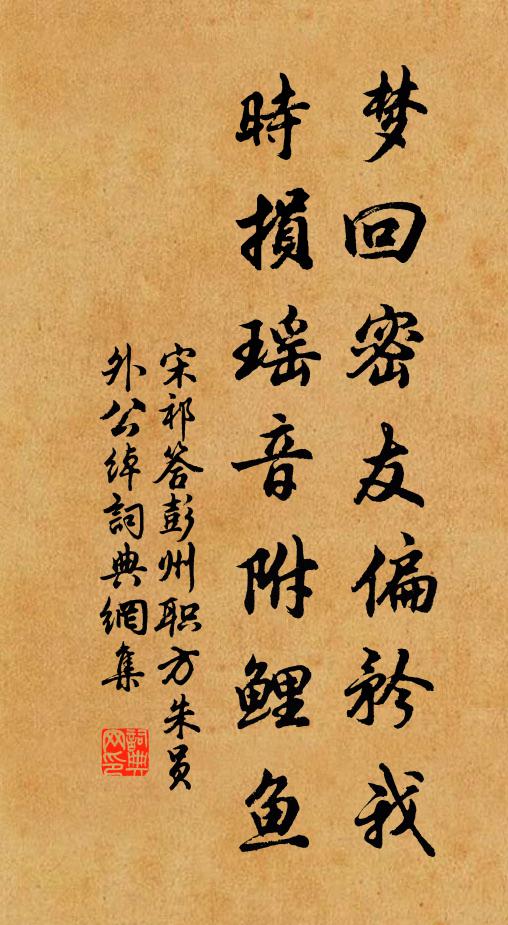 梦回密友偏矜我
時損瑶音附鲤鱼
宋祁答彭州职方朱员
外公绰詞典網集
詞典网印